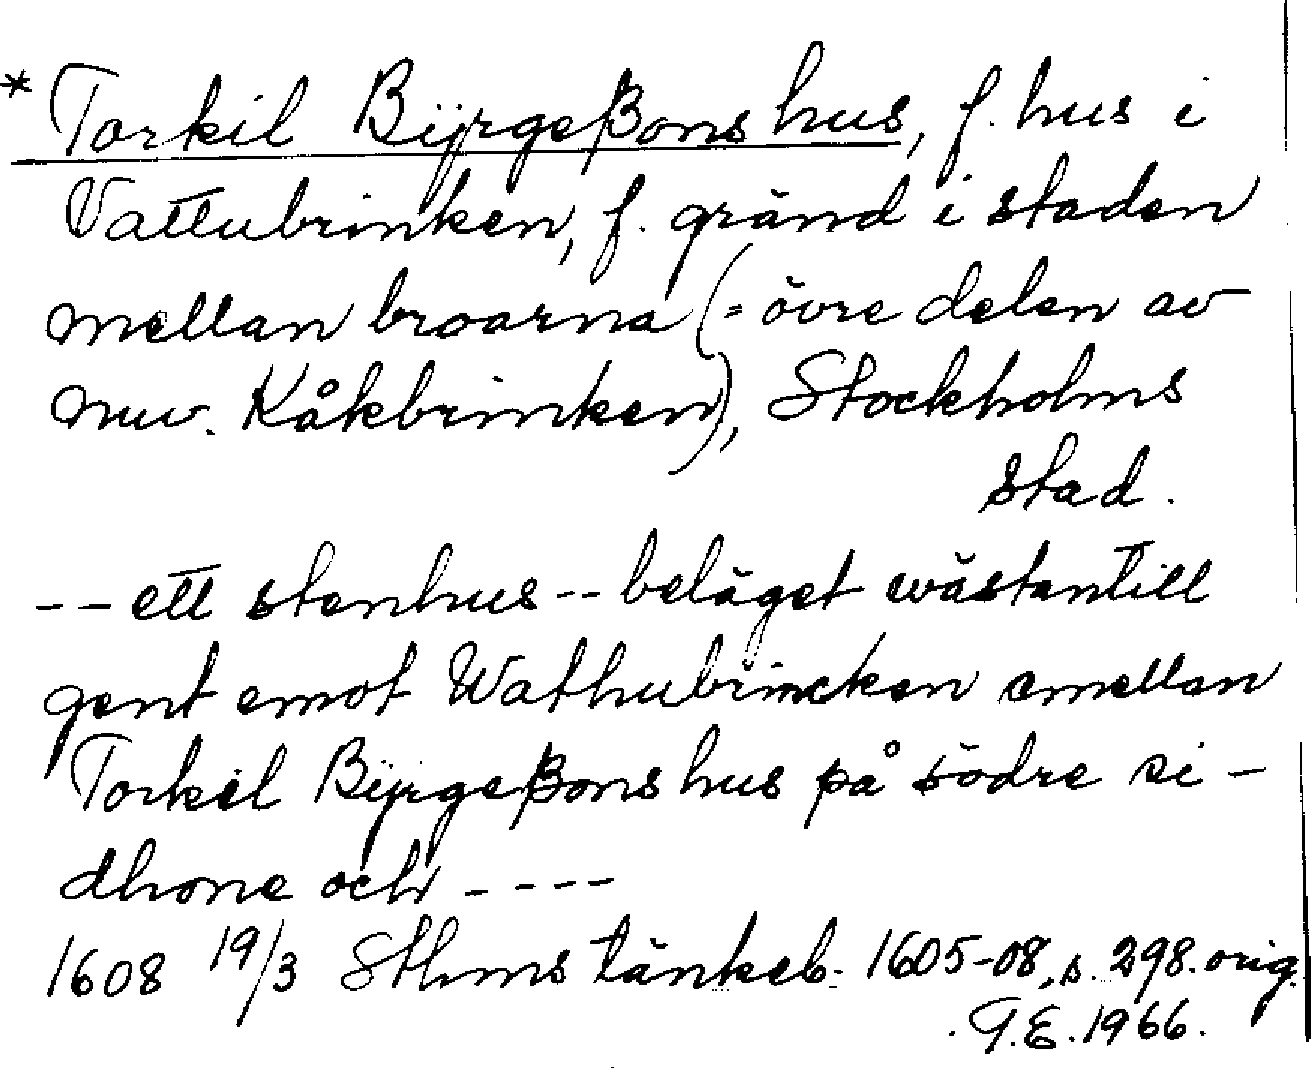 * Torkil BÿrgeßonsHus, f. hus i
Vattubrinken, f. gränd i staden
mellan broarna (= övre delen av
nuv. Kåkbrinken), Stockholms
stad.
-- ett stenhus -- beläget wästantill
gent emot Wathubrincken emellan
Torkel Bÿrgeßons hus på södre si-
dhone och ----
1608 19/3 Sthms tänkeb. 1605-08, s. 298. orig.
G.E. 1966.